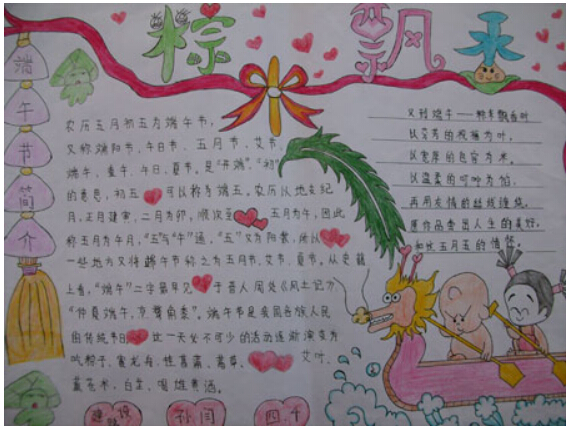 粽飘香
端午节简介
农历五月初五为端午节，
又称端阳节、午日节、五月节、艾节、
端午、重午、午日、夏节。是"开端"、"初"
的意思，初五可以称为端五。农历以地支纪
月，正月建寅，二月为卯，顺次至五月为午，因此
称五月为午月，"五"与"午"通，"五"又为阳数，所以
一些地方又将端午节称之为五月节、艾节、夏节。从史籍
上看，"端午"二字最早见于晋人周处《风土记》
"仲夏端午，烹鹜角黍"。端午节是我国各族人民
的传统节日，这一天必不可少的活动逐渐演变为
吃粽子，赛龙舟，挂菖蒲、蒿草、艾叶，
薰苍术、白芷，喝雄黄酒。
又到端午——粽香飘香时
以芬芳的祝福为叶，
以宽厚的包容为米，
以温柔的叮咛为馅，
再用友情的丝线缠绕，
愿你品尝出人生的美好，
和这五月五的情怀。
四.